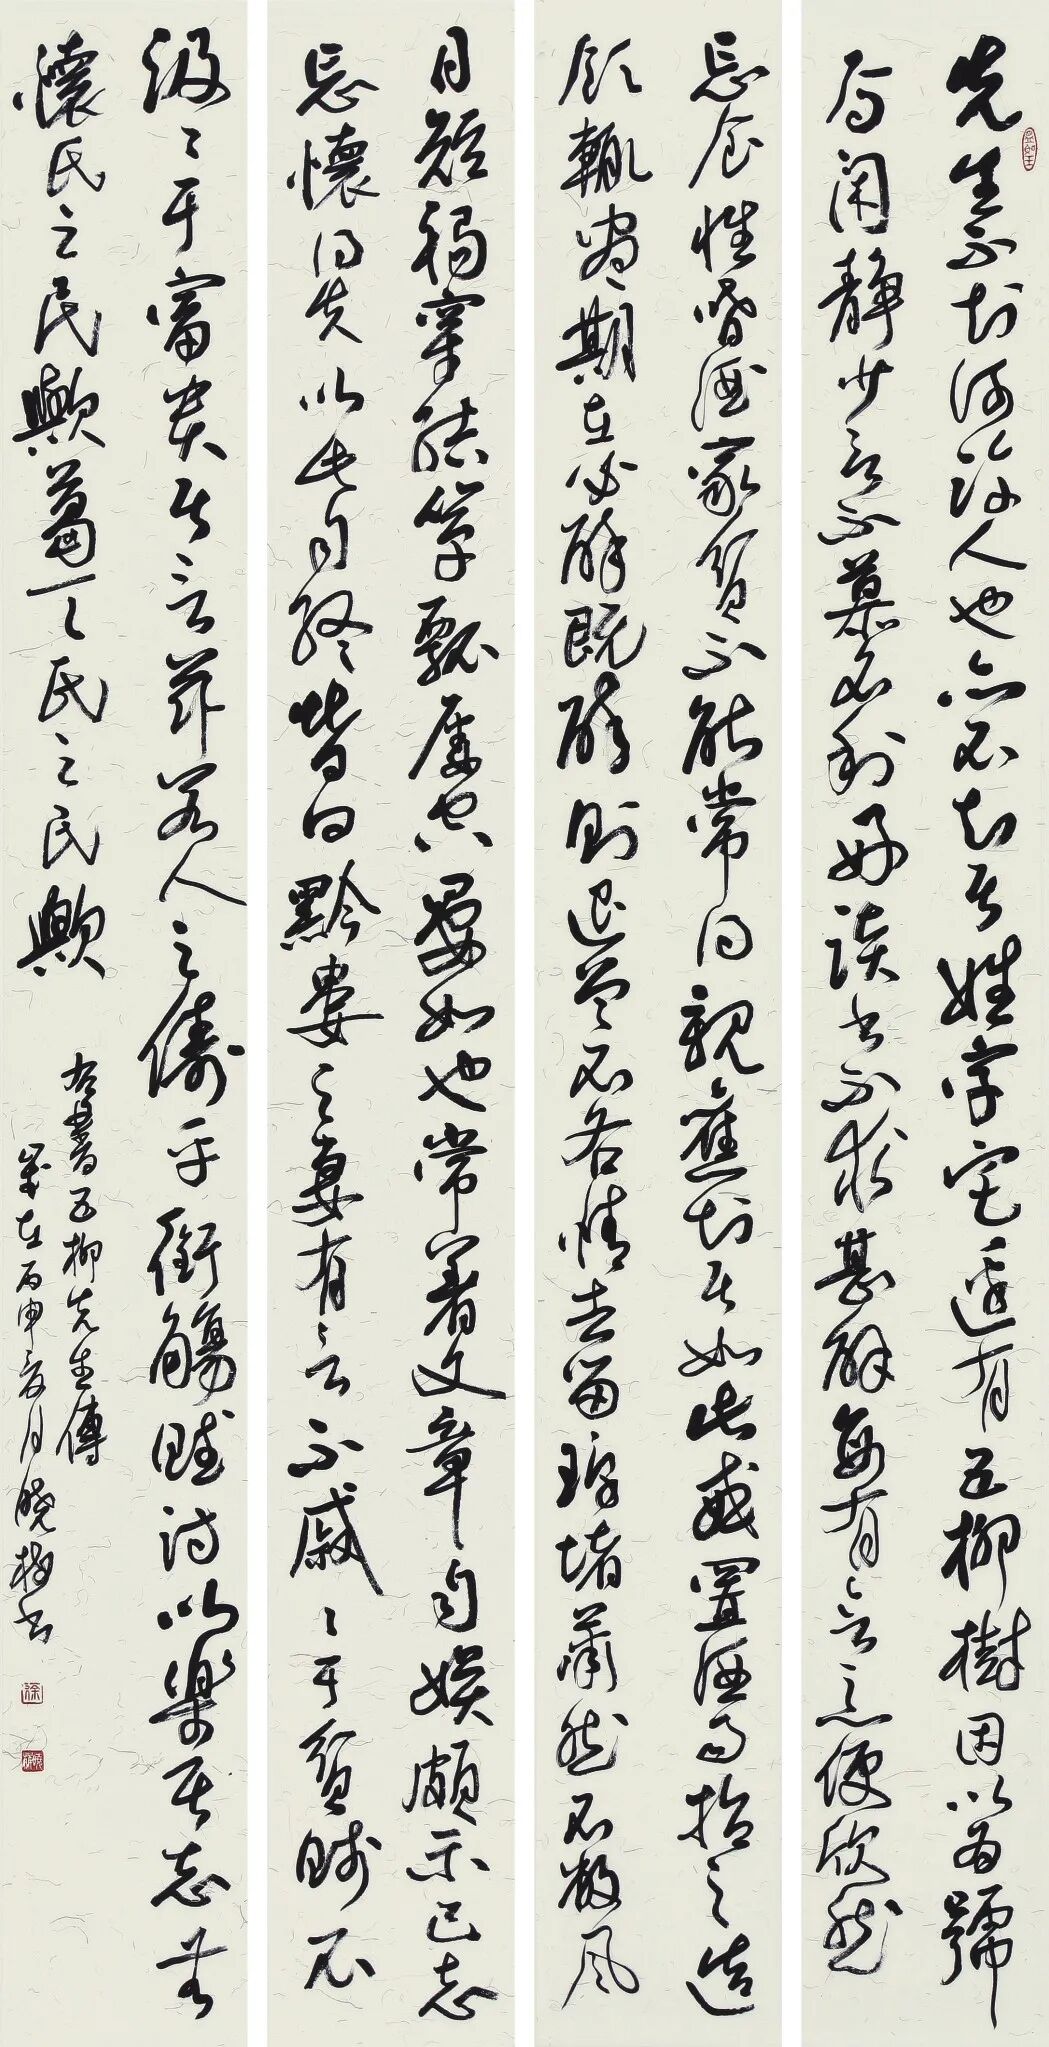 先生不知何許人也亦不知其姓字宅邊有五柳樹因以为號
焉闲靜少言不慕名利好读书不求甚解每有会意便欣然
忘食性嗜酒家貧不能常得親舊知其如此或置酒而招之造
飲輒尽期在必醉既醉則退曾不吝情去留環堵萧然不蔽風
日短褐穿結箪瓢屢空晏如也常著文章自娱頗示己志
忘懷得失以此自終贊曰黔婁之妻有言不戚〻于貧賤不
汲〻于富贵其言茲若人之儔乎銜觴賦诗以樂其志無
懷氏之民歟葛天氏之民歟
右書五柳先生傳
歲在丙申夏月晓梅书
徐